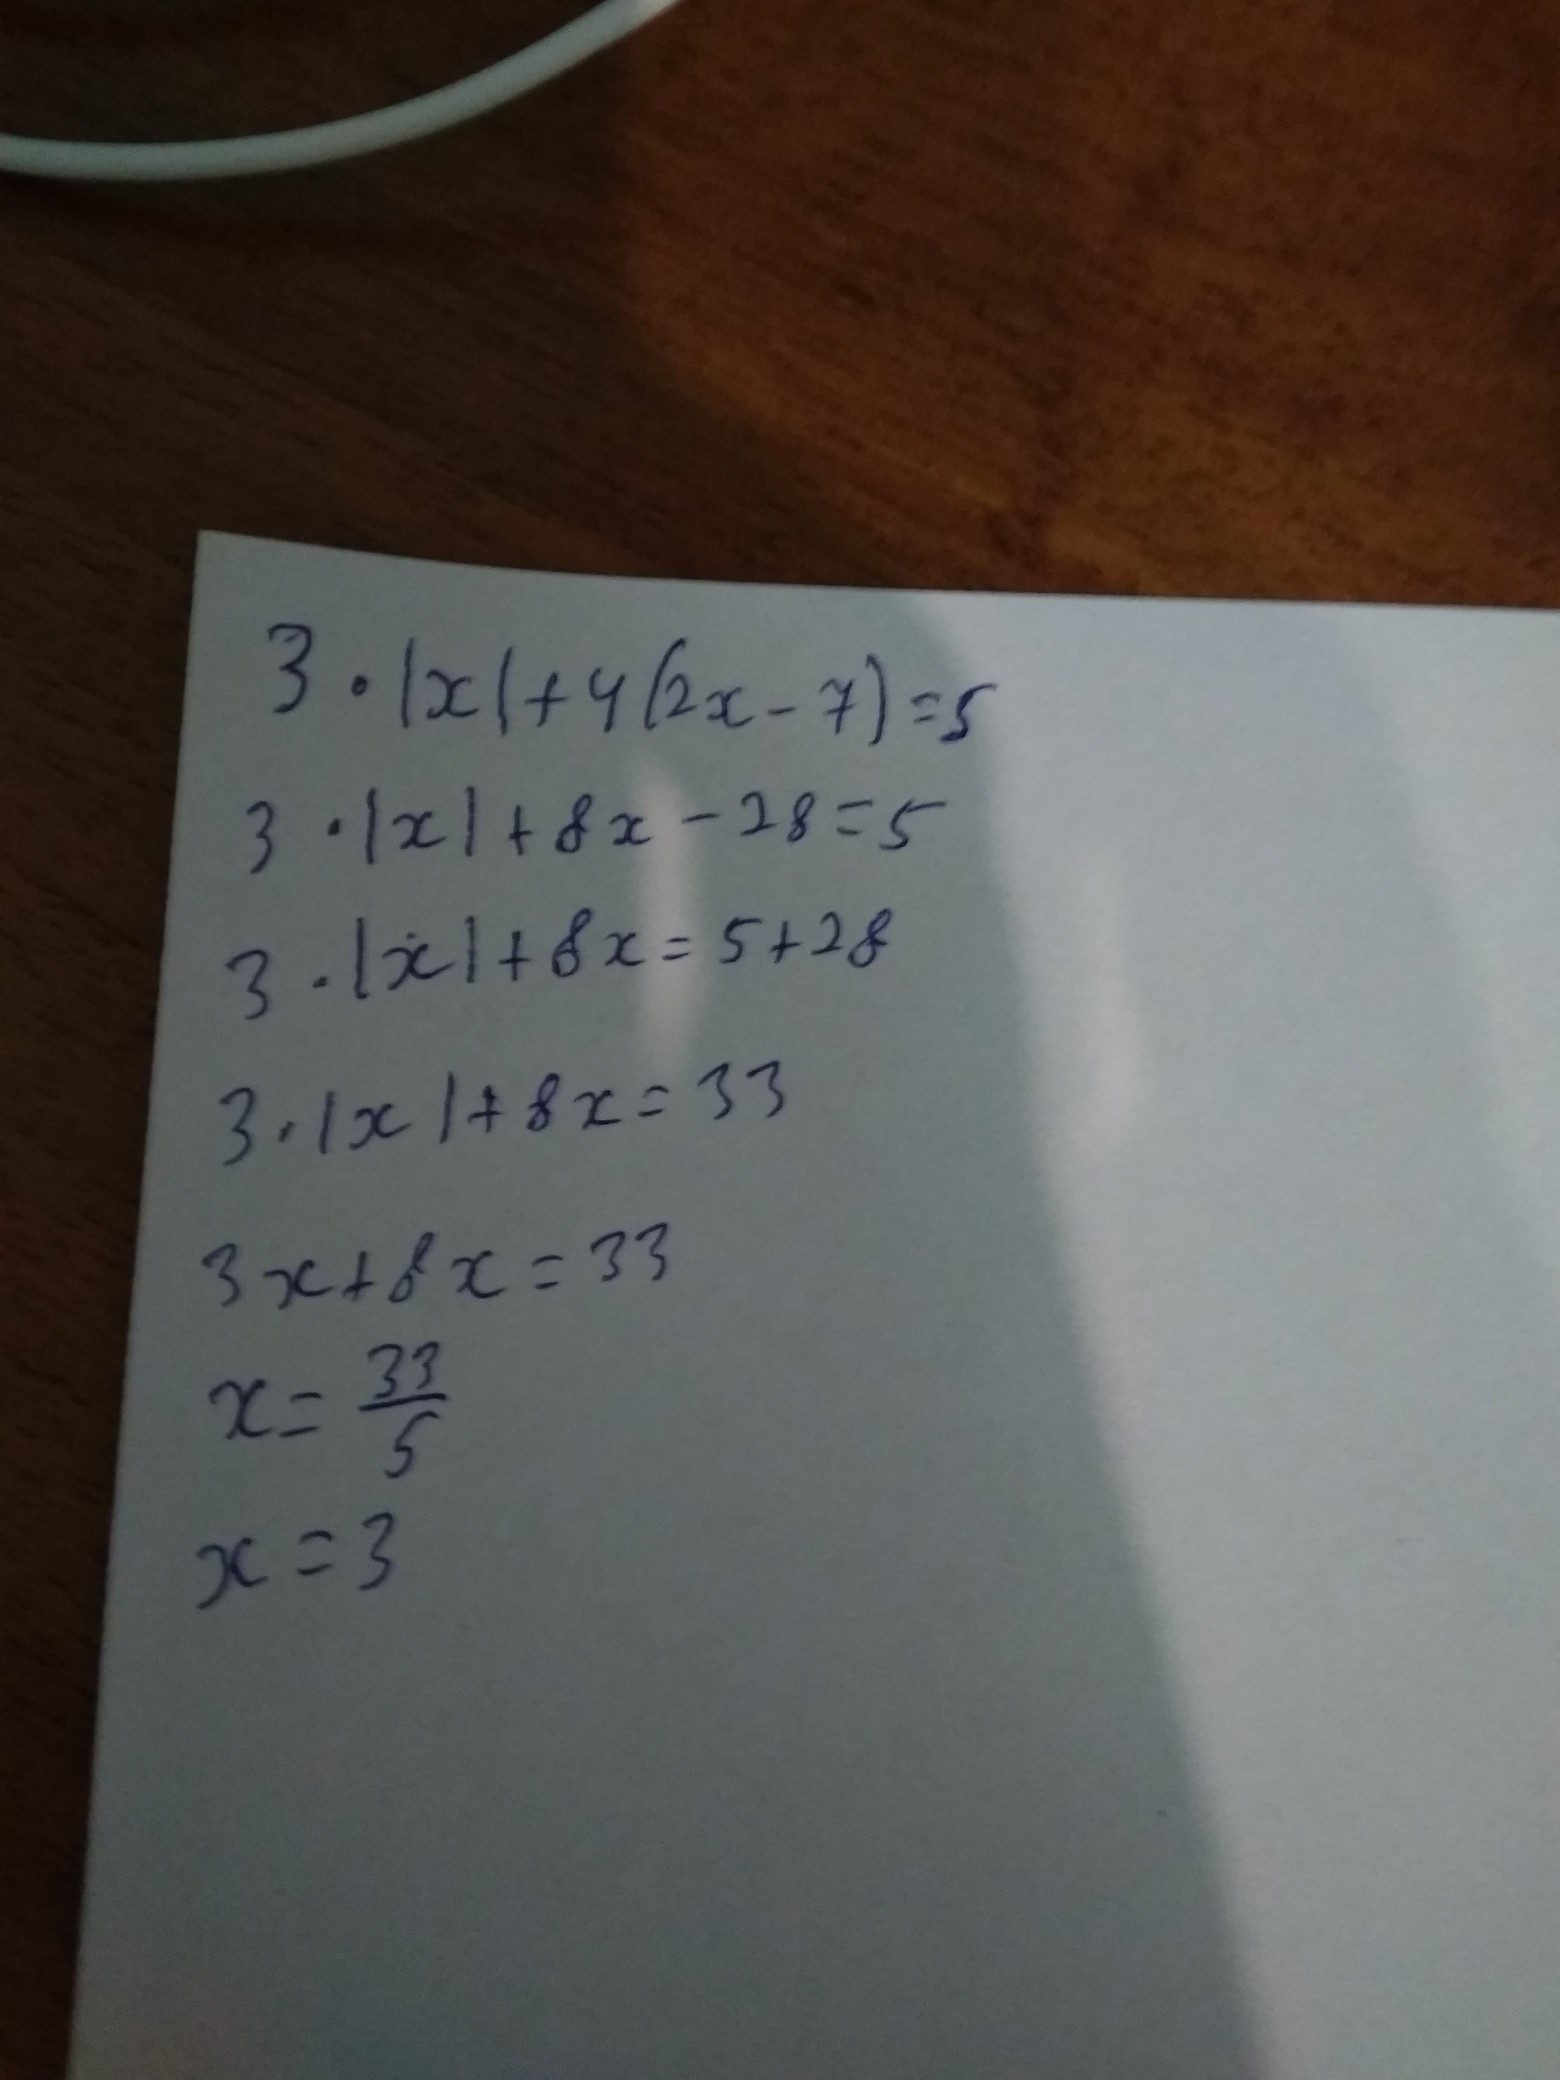 3 · |x| + 4(2x - 7) = 5
3 · |x| + 8x - 28 = 5
3 · |x| + 8x = 5 + 28
3 · |x| + 8x = 33
3x + 8x = 33
x = 33/5
x = 3